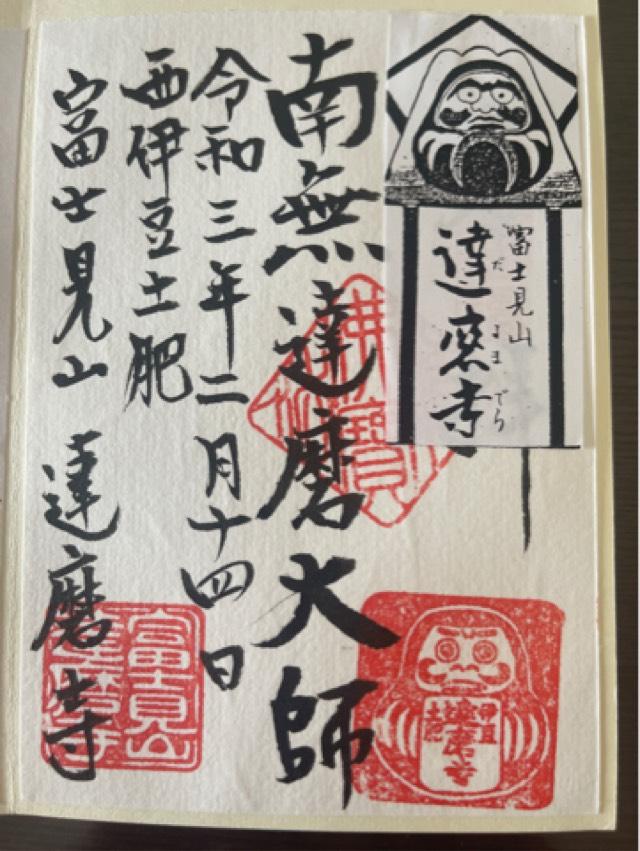 富士見山
達磨寺
だるまでら
南無達磨大師
令和三年二月十四日
西伊豆土肥
富士見山 達磨寺
伊豆
達磨寺
土肥
富士見山
達磨寺